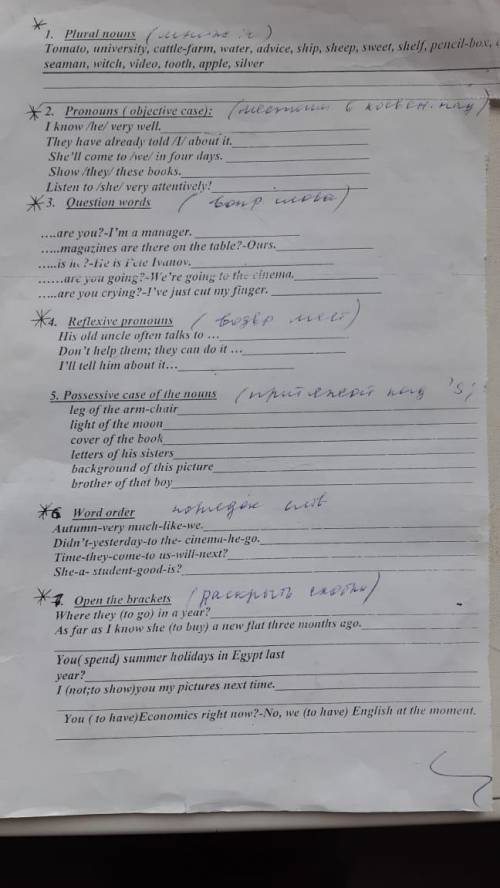 * 1. Plural nouns (множ. ч)
Tomato, university, cattle-farm, water, advice, ship, sheep, sweet, shelf, pencil-box,
seaman, witch, video, tooth, apple, silver
* 2. Pronouns ( objective case): (местоим в косвен. пад)
I know /he/ very well.
They have already told /I/ about it.
She'll come to /we/ in four days.
Show /they/ these books.
Listen to /she/ very attentively!
* 3. Question words (вопр слова)
….are you?-I'm a manager.
…..magazines are there on the table?-Ours.
…..is he?-He is Pete Ivanov.
……are you going?-We're going to the cinema.
…..are you crying?-I've just cut my finger.
* 4. Reflexive pronouns (возвр мест)
His old uncle often talks to …
Don't help them; they can do it …
I'll tell him about it…
5. Possessive case of the nouns (притяжат пад 's;
leg of the arm-chair
light of the moon
cover of the book
letters of his sisters
background of this picture
brother of that boy
* 6 Word order порядок слов
Autumn-very much-like-we.
Didn't-yesterday-to the- cinema-he-go.
Time-they-come-to us-will-next?
She-a- student-good-is?
* 7. Open the brackets (раскрыть скобки)
Where they (to go) in a year?
As far as I know she (to buy) a new flat three months ago.
You( spend) summer holidays in Egypt last
year?
I (not;to show)you my pictures next time.
You ( to have)Economics right now?-No, we (to have) English at the moment.